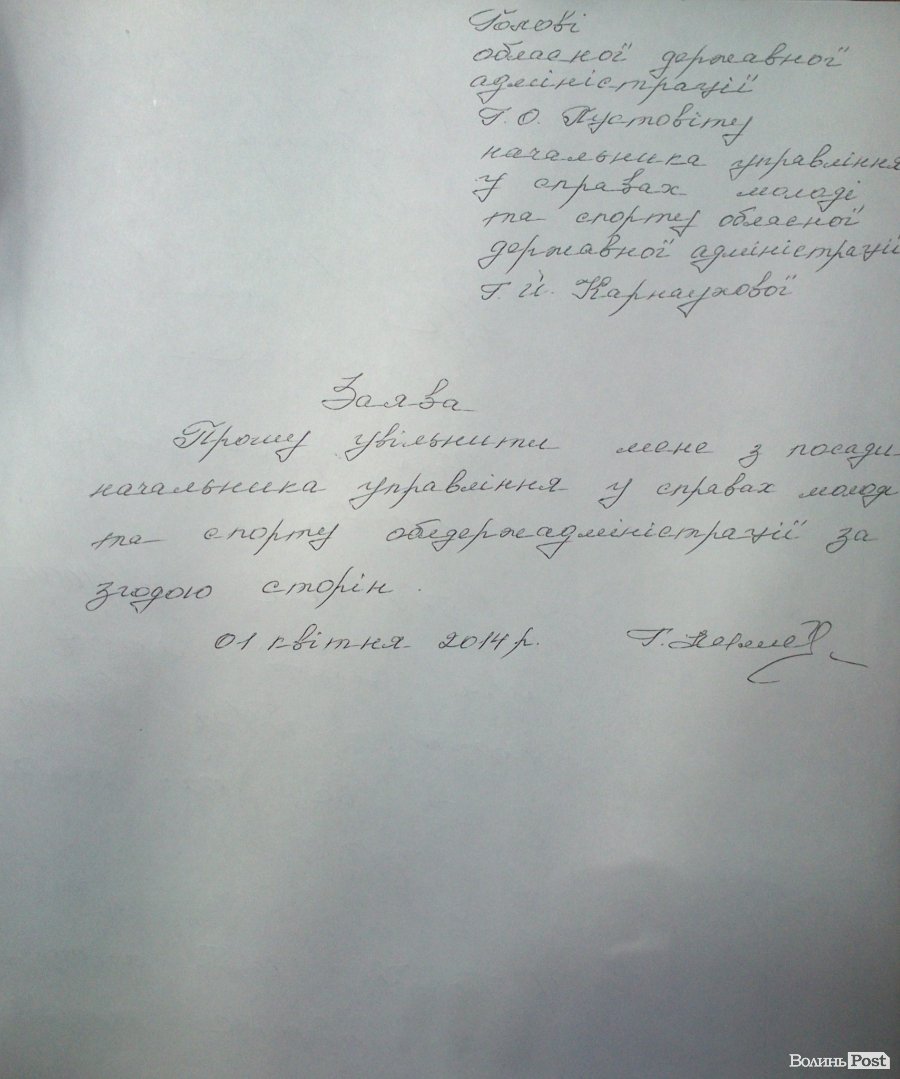 Голові
обласної державної
адміністрації
Г. О. Пустовіту
начальника управління
у справах молоді
та спорту обласної
державної адміністрації
Г. Й. Карнаухової
Заява
Прошу увільнити мене з посади
начальника управління у справах молод
та спорту облдержадміністрації за
згодою сторін.
01 квітня 2014 р. Г.
ВолиньPost